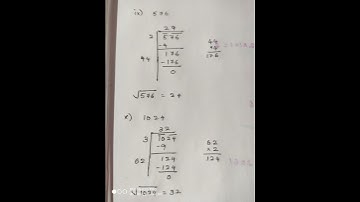 ix) 576
24
2 576
-4
44 176
-176
0
44
×4
176
√576 = 24
x) 1024
32
3 1024
-9
62 124
-124
0
62
×2
124
√1024 = 32